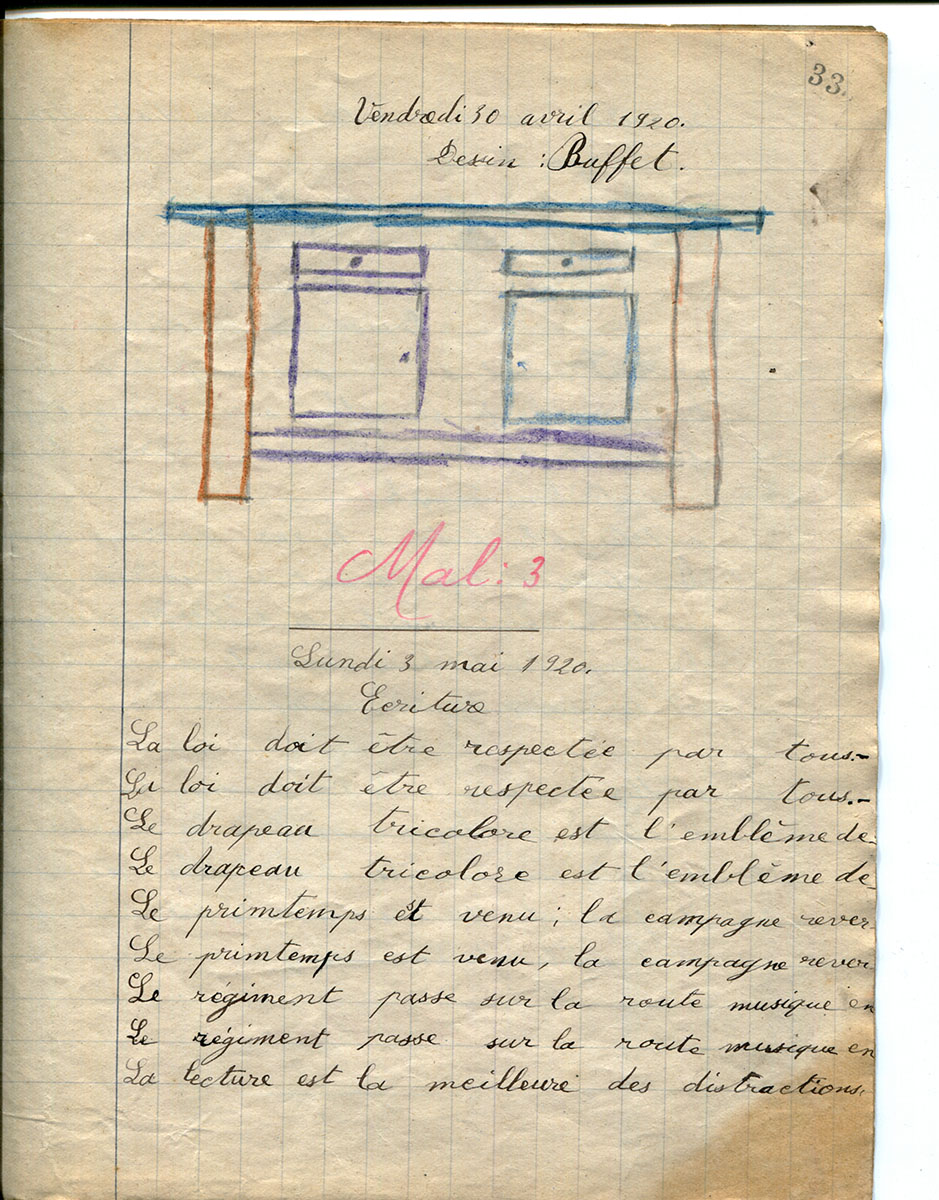 33.
Vendredi 30 avril 1920.
Dessin : Buffet.
Mal : 3
Lundi 3 mai 1920.
Ecriture
La loi doit être respectée par tous.-
La loi doit être respectée par tous.-
Le drapeau tricolore est l'emblême de
Le drapeau tricolore est l'emblême de
Le primtemps est venu ; la campagne rever
Le primtemps est venu, la campagne rever
Le régiment passe sur la route musique en
Le régiment passe sur la route musique en
La lecture est la meilleure des distractions.